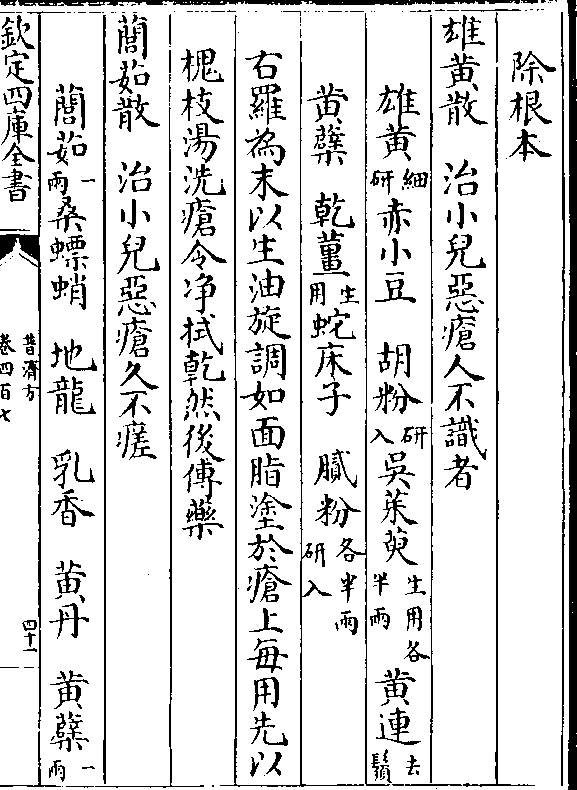 除根本
雄黄散　治小兒惡瘡人不識者
雄黄細研赤小豆　胡粉研入吳茱萸生用各半兩　黄連去鬚
黄蘗　乾薑生用蛇床子　膩粉各半兩研入
右羅為末以生油旋調如面脂塗於瘡上每用先以
槐枝湯洗瘡令净拭乾然後傅藥
藘茹散　治小兒惡瘡久不瘥
藘茹一兩桑螵蛸　地龍　乳香　黄丹　黄蘗一兩
欽定四庫全書
普濟方
卷四百七
四十一